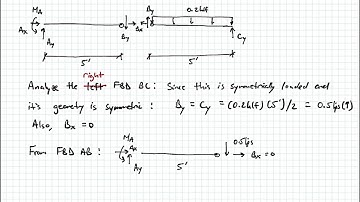 MA By 0.2klf
Ax Bx Bx
Ay By Cy
5' 5'
right
Analyze the left FBD BC: Since this is symmetrically loaded and
it's geometry is symmetric: By = Cy = (0.2klf)(5')/2 = 0.5kips(↑)
Also, Bx = 0
From FBD AB: MA Ax 0.5kips Bx = 0
Ay 5'